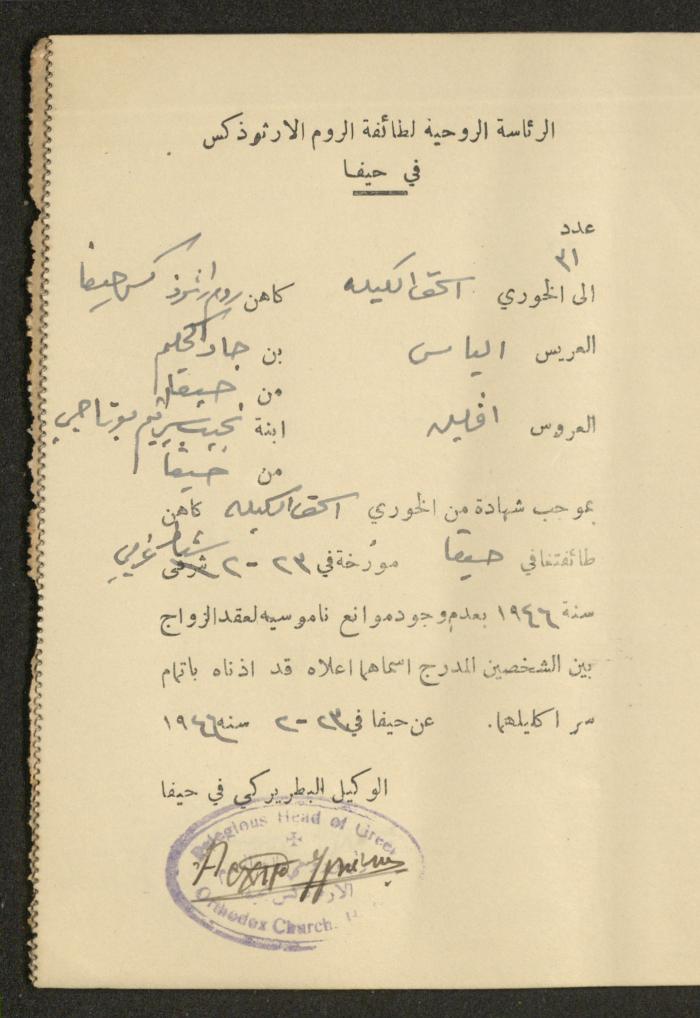 الرئاسة الروحية لطائفة الروم الارثوذكس
في حيفا
عدد
٣١
الى الخوري اسحق الكيله كاهن روم ارثوذكس حيفا
العريس الياس بن جاد الحكيم
من حيفا
العروس افلين ابنة نجيب
من حيفا
بموجب شهادة من الخوري اسحق الكيله كاهن
طائفتنا في حيفا مورخة في ٢٣-٢ شرقى شباط غربي
سنة ١٩٤٦ بعدم وجود موانع ناموسيه لعقد الزواج
بين الشخصين المدرج اسماهما اعلاه قد اذناه باتمام
سر اكليلهما. عن حيفا في ٢٣-٢ سنه ١٩٤٦
الوكيل البطريركي في حيفا
Relegious Head of Greek
Orthodox Church.